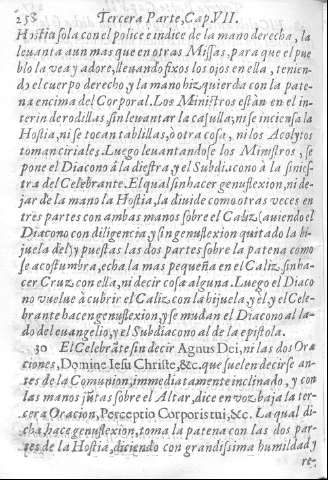 258 Tercera Parte, Cap. VII.
Hostia sola con el police e indice de la mano derecha, la
leuanta aun mas que en otras Missas, para que el pue
blo la vea y adore, lleuando fixos los ojos en ella, tenien-
do el cuerpo derecho, y la mano hizquierda con la pate-
na encima del Corporal. Los Ministros estàn en el in-
terin de rodillas, sin leuantar la casulla, ni se inciensa la
Hostia, ni se tocan tablillas, ò otra cosa, ni los Acolytos
toman ciriales. Luego leuantandose los Ministros, se
pone el Diacono à la diestra, y el Subdiacono à la sinies-
tra del Celebrante. El qual sin hacer genuflexion, ni de-
jar de la mano la Hostia, la diuide como otras veces en
tres partes con ambas manos sobre el Caliz (auiendo el
Diacono con diligencia, y sin genuflexion quitado la bi-
juela del) y puestas las dos partes sobre la patena como
se acostumbra, echa la mas pequeña en el Caliz, sin ha-
cer Cruz con ella, ni decir cosa alguna. Luego el Diaco
no vuelue à cubrir el Caliz con la bijuela, y el y el Cele-
brante hacen genuflexion, y se mudan el Diacono al la-
do del euangelio, y el Subdiacono al de la epistola.
30 El Celebrãte sin decir Agnus Dei, ni las dos Ora
ciones, Domine Iesu Christe, &c. que suelen decirse an-
tes de la Comunion, immediatamente inclinado, y con
las manos jũtas sobre el Altar, dice en voz baja la ter-
cera Oracion, Perceptio Corporis tui, &c. La qual di-
cha, hace genuflexion, toma la patena con las dos par-
tes de la Hostia, diciendo con grandissima humildad y
re-